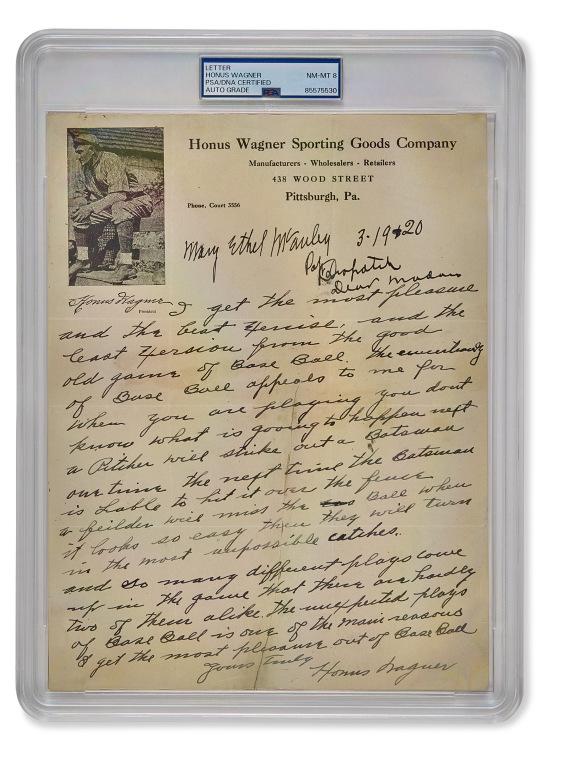 LETTER
HONUS WAGNER
PSA/DNA CERTIFIED
AUTO GRADE
NM-MT 8
85575530
Honus Wagner Sporting Goods Company
Manufacturers - Wholesalers - Retailers
438 WOOD STREET
Pittsburgh, Pa.
Phone, Court 3556
Mary Ethel McAuley 3-19-20
Dispatch
Dear Madam
Honus Wagner
President
I get the most pleasure
and the best and the
least from the good
old game of Base Ball. the
of Base Ball appeals to me for
when you are playing you dont
know what is gooing to happen neft
a Pitcher will strike out a Batsman
one time the neft time the Batsman
is Lable to hit it over the fence
a feilder will miss the Ball when
it looks so easy then they will turn
in the most unpossible catches.
and so many different plays come
up in the game that there are hardly
two of them alike. the unexpected plays
of Base Ball is one of the main reasons
I get the most pleasure out of Base Ball
Yours Truly
Honus Wagner